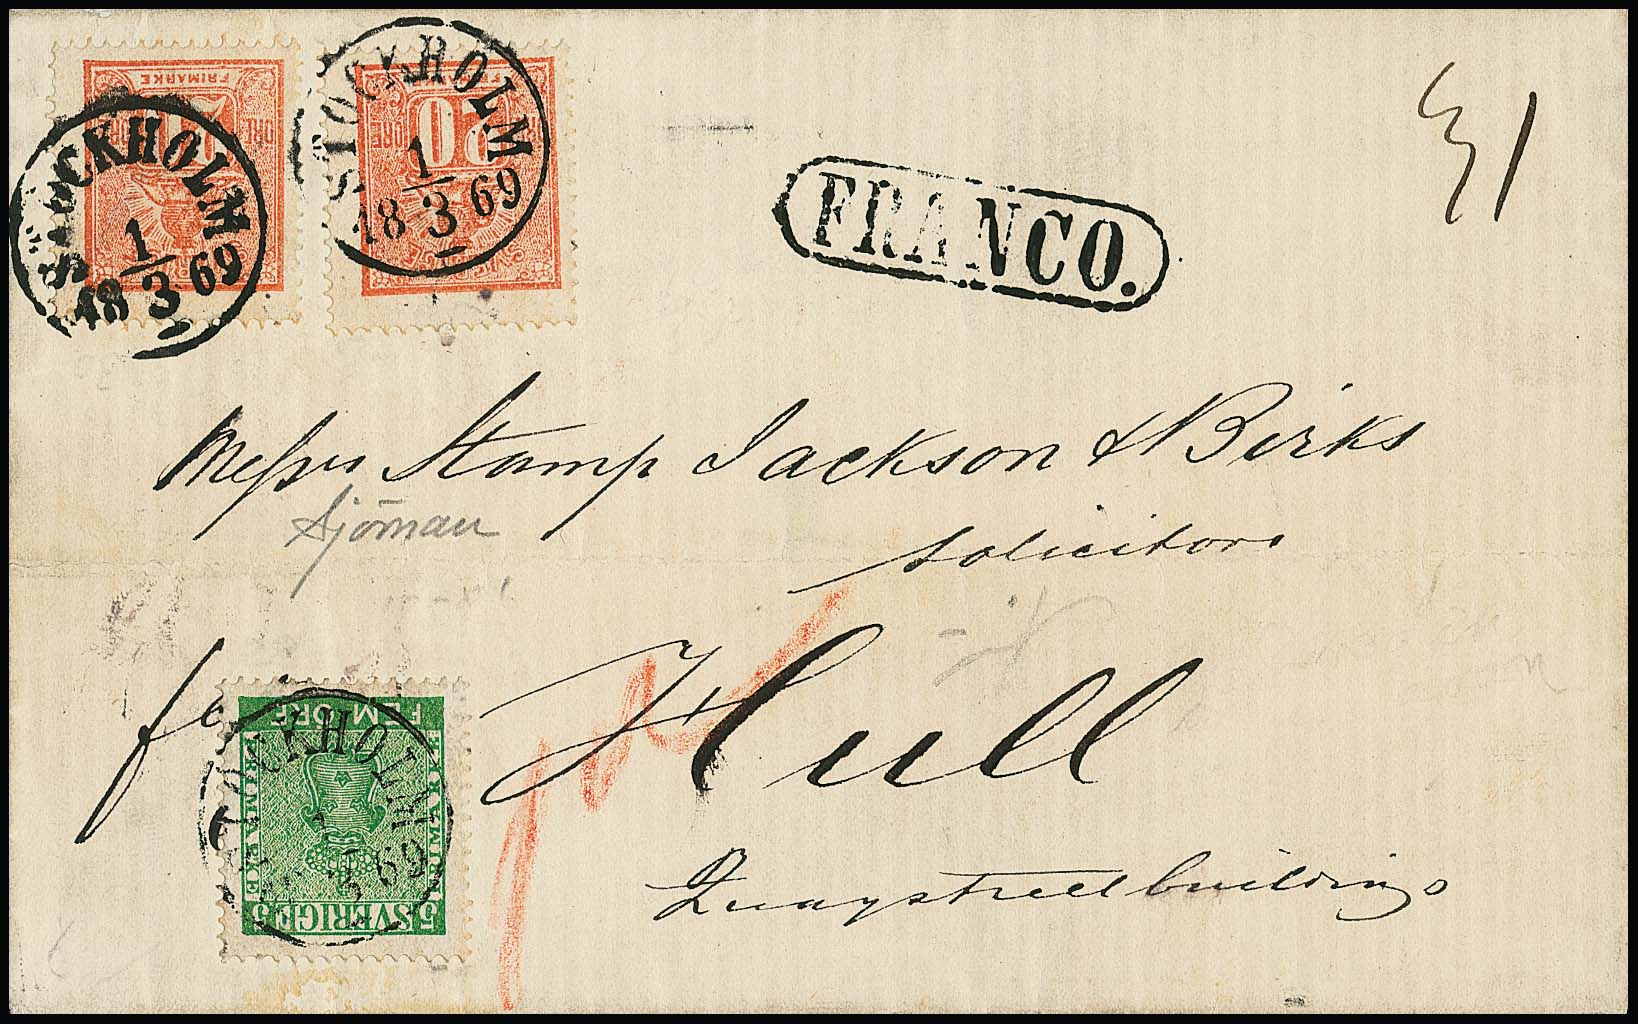 FRIMARKE
20
ÖRE
STOCKHOLM
1
18 3 69
FRIMARKE
20
ÖRE
SVERIGE
STOCKHOLM
1
18 3 69
FRANCO.
Messrs Stamp Jackson & Birks
Sjöman
Solicitors
Hull
Quaystreet buildings
FEM ÖRE
FRIMÄRKE
5 SVERIGE 5
STOCKHOLM
1
3 69